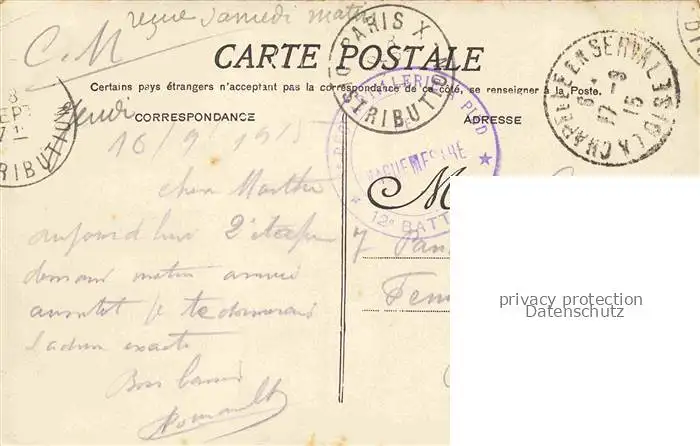 reçue samedi matin
C. M
CARTE POSTALE
Certains pays étrangers n'acceptant pas la correspondance de ce côté, se renseigner à la Poste.
CORRESPONDANCE
ADRESSE
PARIS X
DISTRIBUTION
LA CHAPELLE EN SERVAL
OISE
6 -
17 -9
15
VAGUEMESTRE
12e BATT
Jeudi
16/9 1915
chère Marthe
aujourd'hui 2e étape
demain matin arrivée
aussitôt je te donnerai
l'adresse exacte
Bons baisers
M
7
privacy protection
Datenschutz